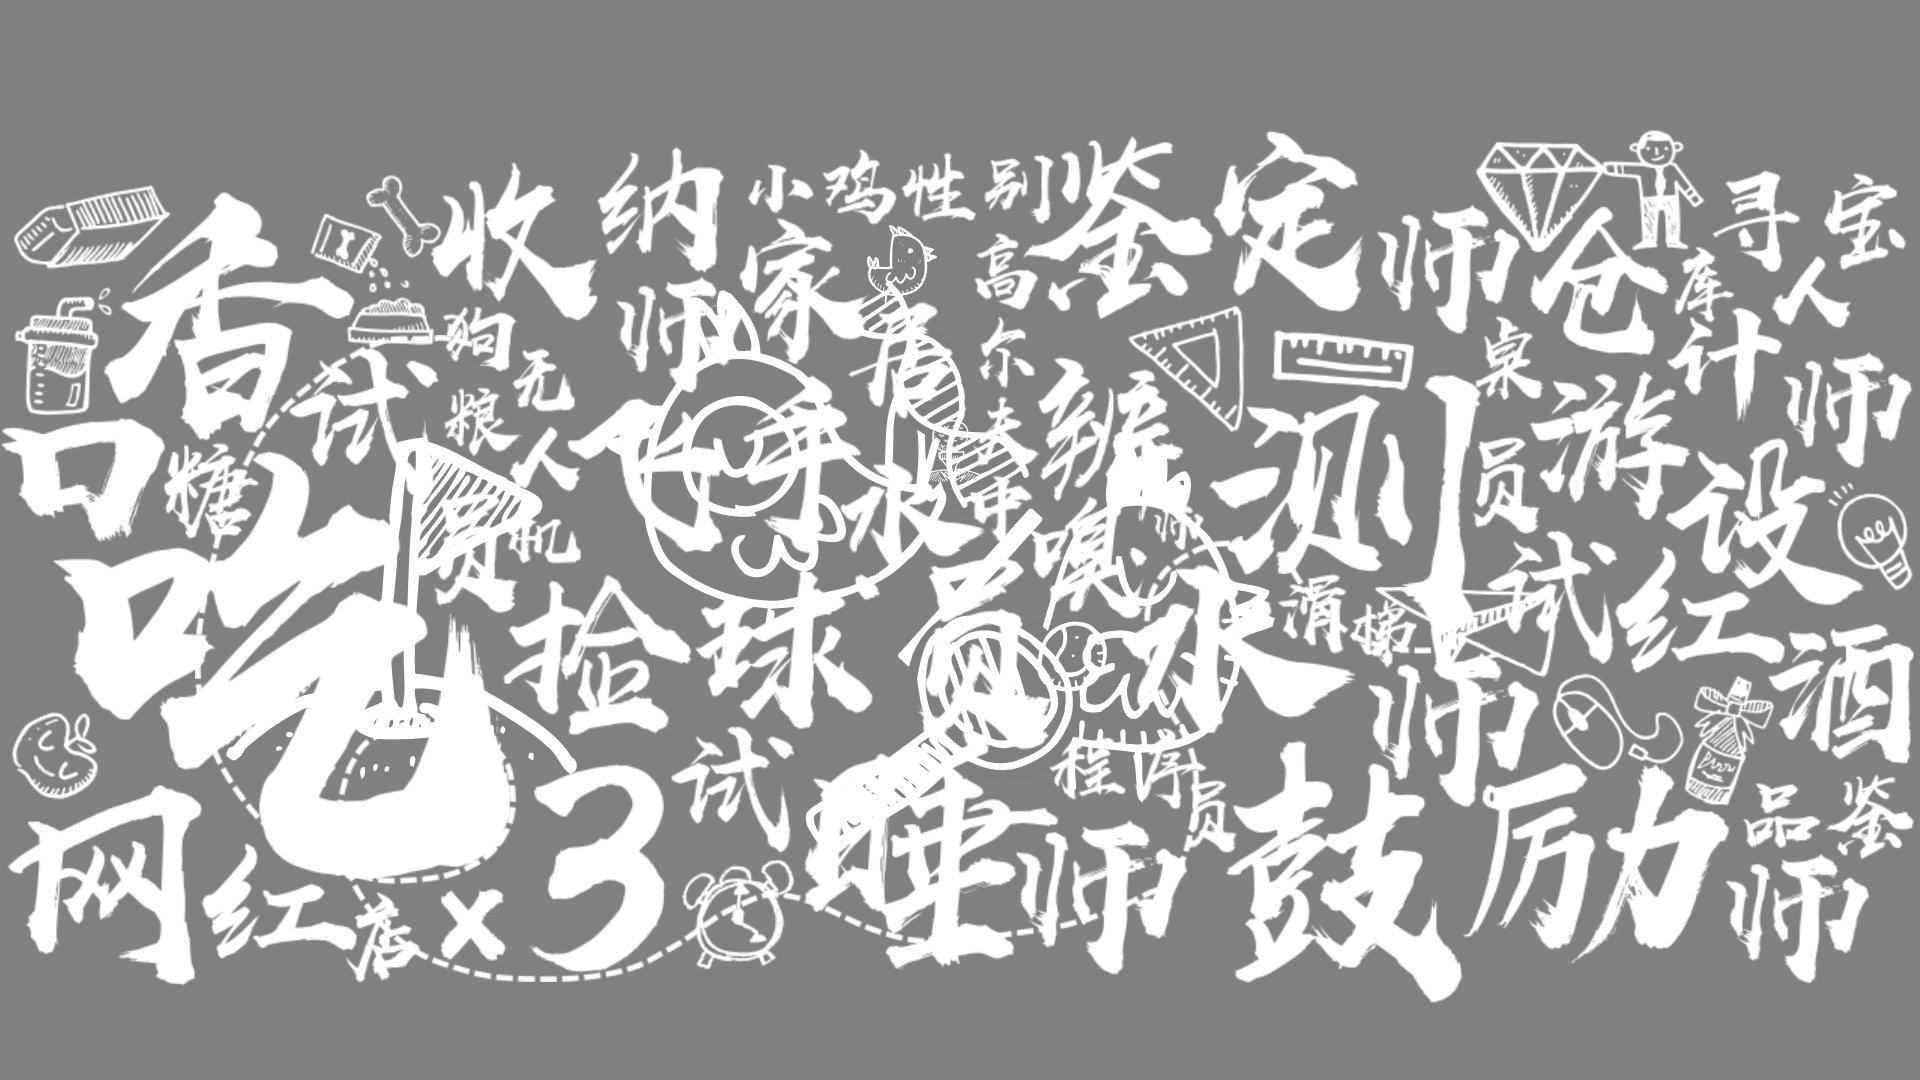 香
收纳
师
小鸡性别
鉴定
师
家居
高尔夫
仓库
寻宝人
口
糖
试
吃
员
狗粮
无人机
飞手
水中
捡球
员
辨
嗅
师
水
滑梯
测
试
师
桌游
设计
师
员
红酒
品鉴
师
网红店
x3
试
睡
师
程序
员
鼓励
师